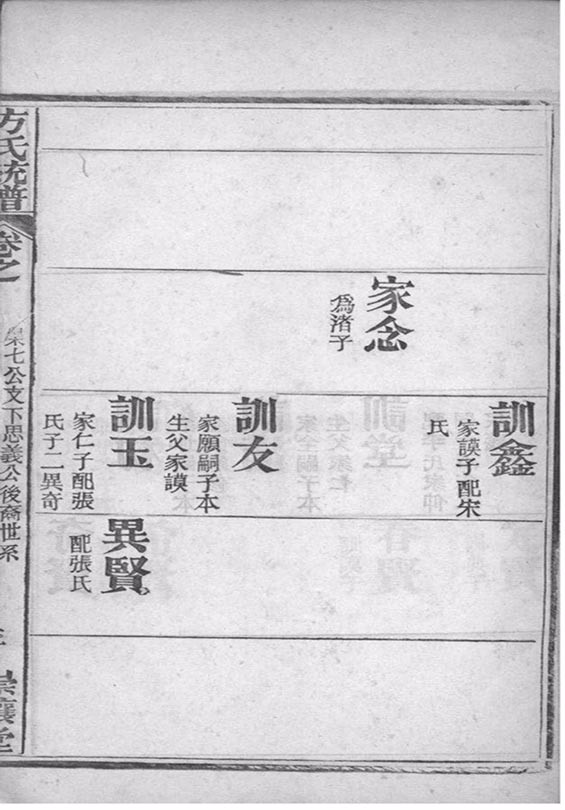 訓鑫
家謨子配宋
氏
家念
為渚子
訓友
家願嗣子本
生父家謨
訓玉
家仁子配張
氏子二異奇
異賢
配張氏
方氏統譜
卷之
七公文下思義公後裔世系
襄堂